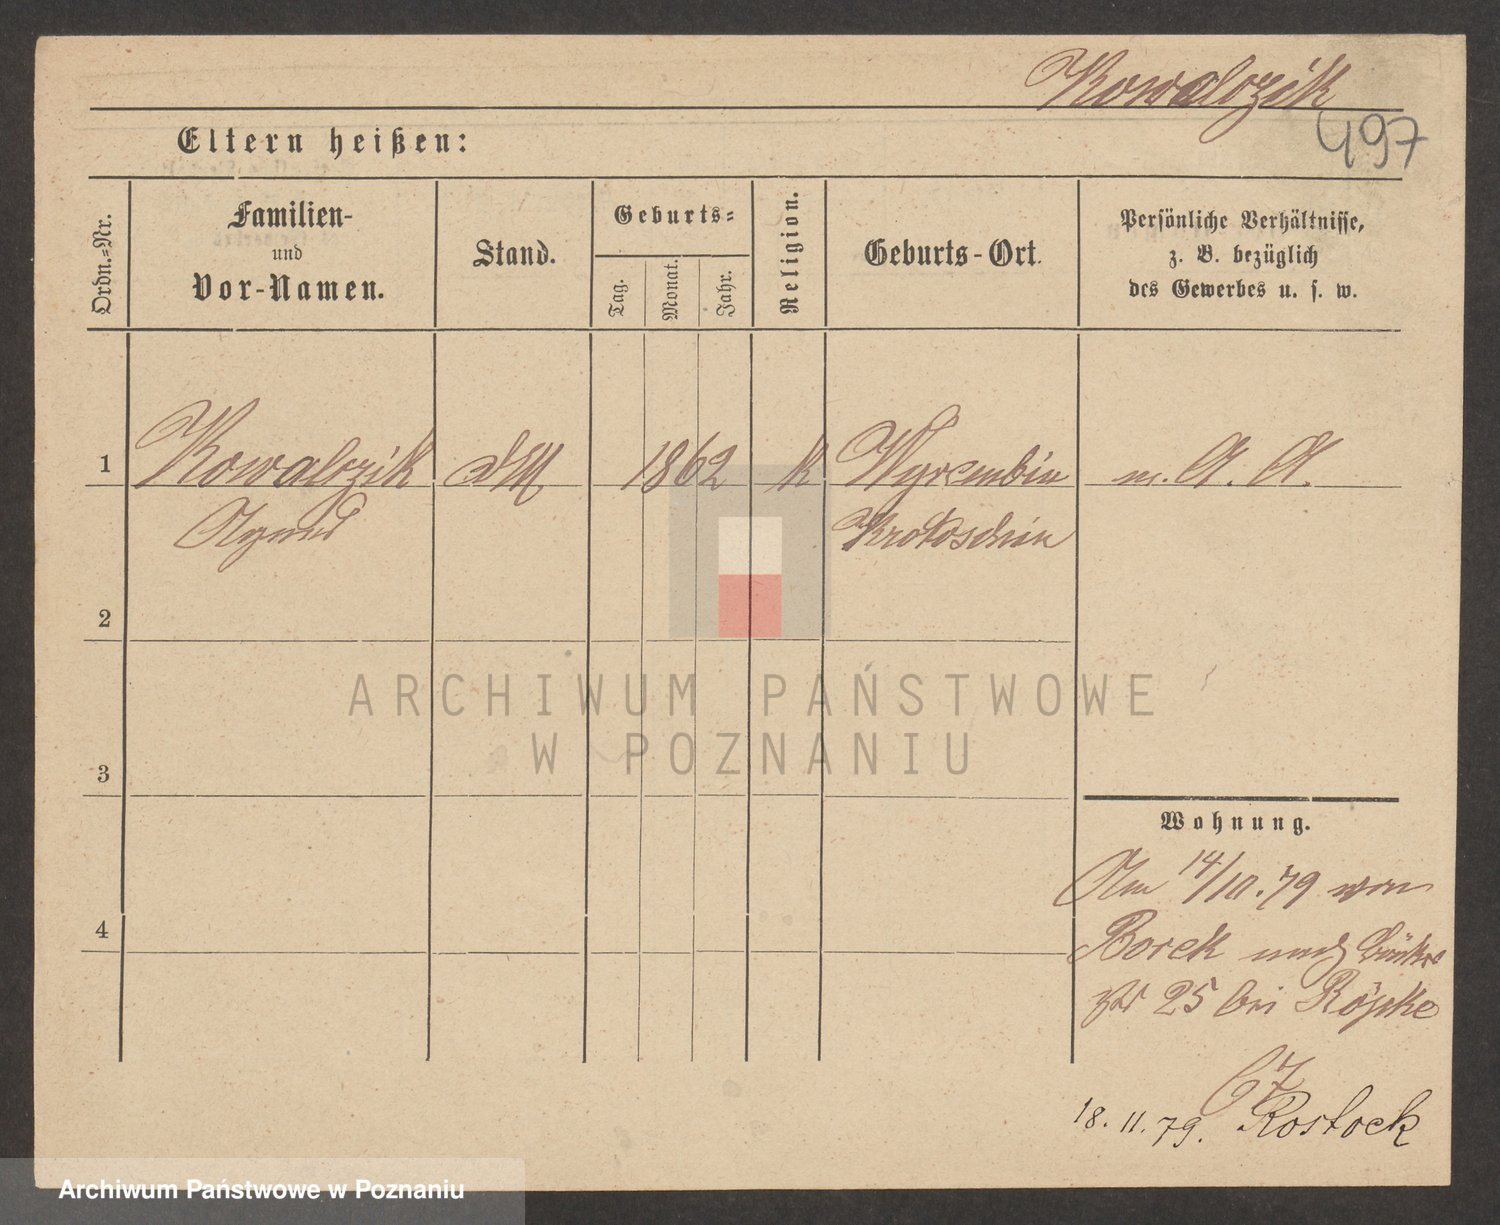 Kowalczik
497
Eltern heißen:
Ordn.=Nr.
Familien-
und
Vor-Namen.
Stand.
Geburts=
Tag.
Monat.
Jahr.
Religion.
Geburts-Ort.
Persönliche Verhältnisse,
z. B. bezüglich
des Gewerbes u. s. w.
1 Kowalczik 1862 k Wyrembin m. A. A.
Krotoschin
2
ARCHIWUM PAŃSTWOWE
W POZNANIU
3
Wohnung.
Am 14/10.79 von
4
Borek nach
25 bei Röpke
18. 11. 79. Rostock
Archiwum Państwowe w Poznaniu